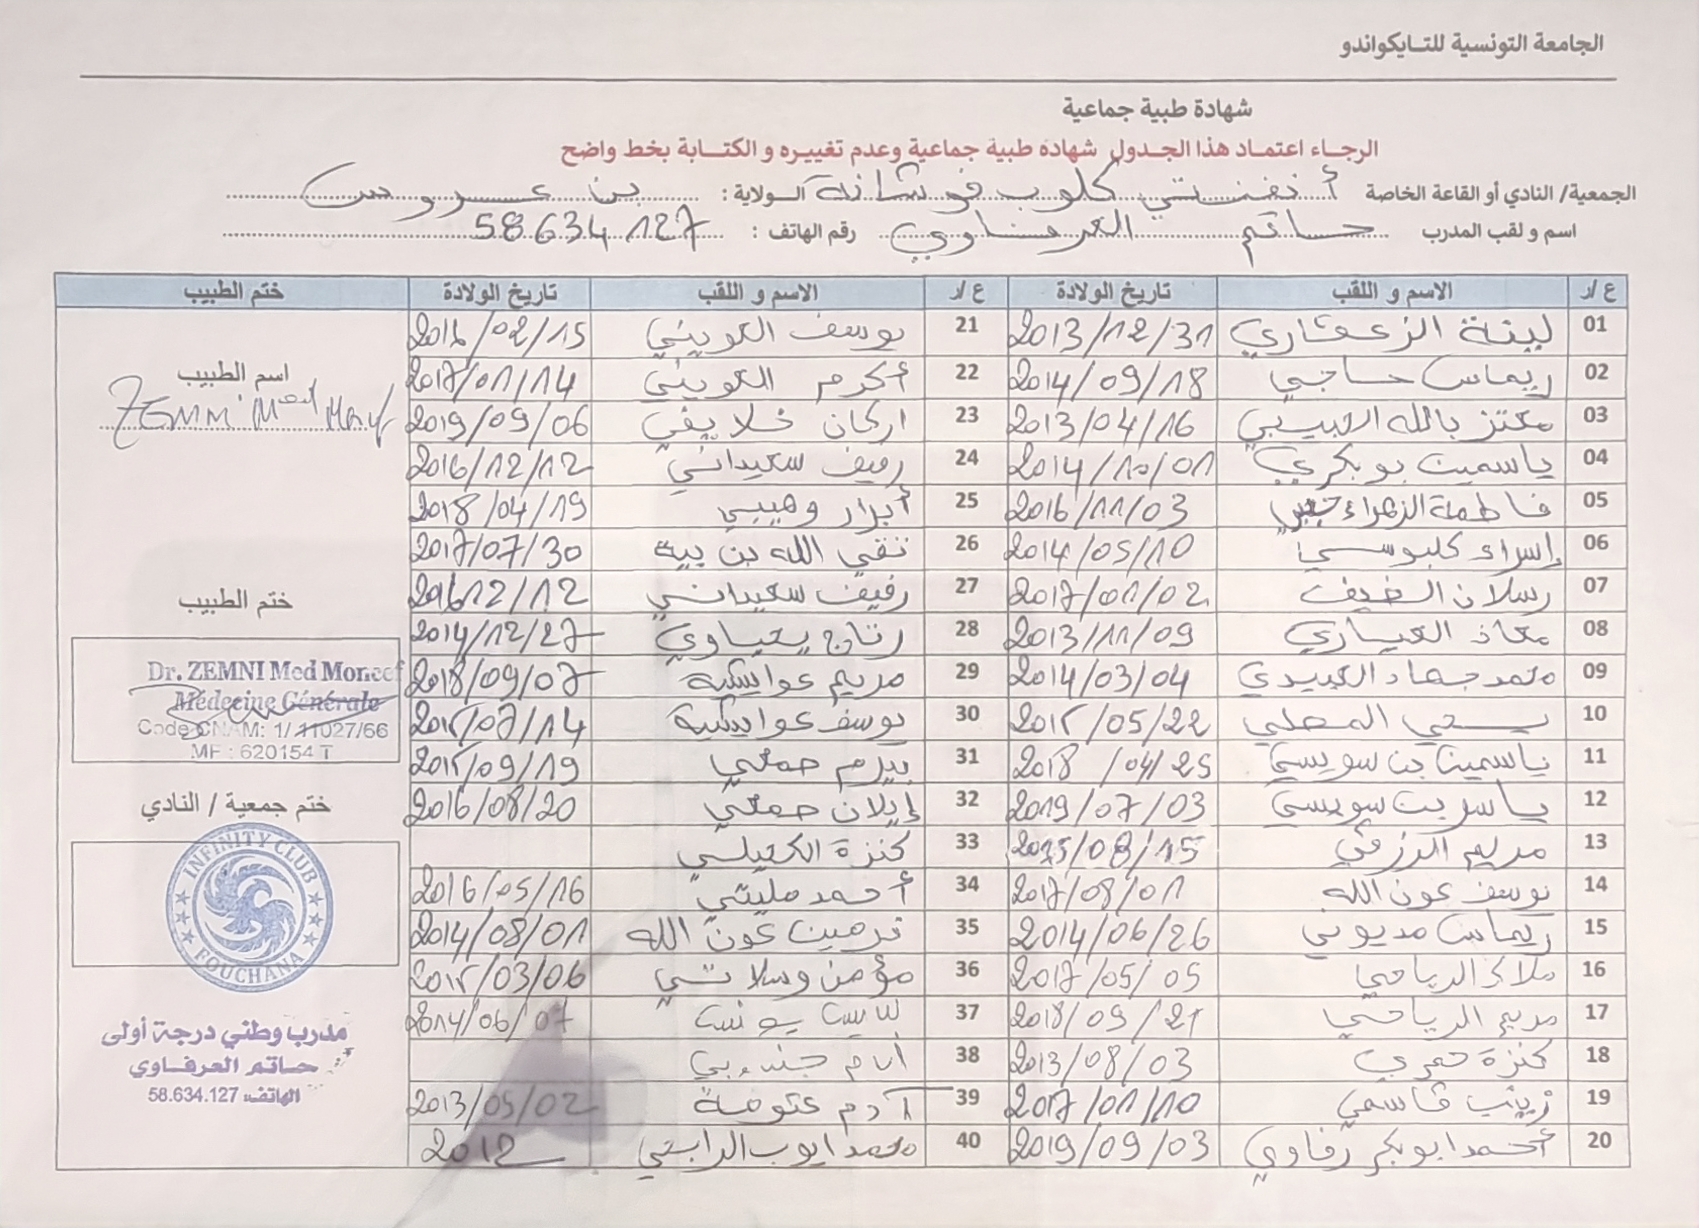 الجامعة التونسية للتايكواندو
شهادة طبية جماعية
الرجاء اعتماد هذا الجدول شهادة طبية جماعية وعدم تغييره و الكتابة بخط واضح
الجمعية/ النادي أو القاعة الخاصة أنفنتي كلوب فوشانة الولاية : بن عروس
اسم و لقب المدرب حاتم العرفاوي رقم الهاتف : 58.634.127
ع/ر الاسم و اللقب تاريخ الولادة ع/ر الاسم و اللقب تاريخ الولادة ختم الطبيب
01 لينة الزعقاري 2013/12/31 21 يوسف الكويني 2016/02/15
02 ريماس حاجي 2014/09/18 22 أكرم الكويني 2017/01/14
03 معتز بالله الحبيبي 2013/04/16 23 اركان خلايفي 2019/09/06
04 ياسمين بوبكري 2014/10/01 24 رفيف سعيداني 2016/12/12
05 فاطمة الزهراء 2016/11/03 25 أبرار وهيبي 2018/04/19
06 إسراء كلبوسي 2014/05/10 26 تقي الله بن بية 2017/07/30
07 رسلان الضيف 2017/01/02 27 رفيف سعيداني 201612/12
08 معاذ العياري 2013/11/09 28 رتاج يحياوي 2014/12/27
09 محمد جهاد العبيدي 2014/03/04 29 مريم عوايشية 2018/09/07
10 يحي المحلي 2015/05/22 30 يوسف عوايشية 2015/07/14
11 ياسمين بن سويسي 2018/04/25 31 بيرم حمصي 2015/09/19
12 ياسر بن سويسي 2019/07/03 32 إيلان حمصي 2016/08/20
13 مريم الرزقي 2015/08/15 33 كنزة الكحيلي
14 يوسف عون الله 2017/08/01 34 أحمد مليتي 2016/05/16
15 ريماس مديوني 2014/06/26 35 نرمين عون الله 2014/08/01
16 ملاك الرياحي 2017/05/05 36 مؤمن وسلاتي 2015/03/06
17 مريم الرياحي 2018/09/21 37 يونس 2014/06/07
18 كنزة عمري 2013/08/03 38
19 زينب قاسمي 2017/01/10 39 آدم 2013/05/02
20 أحمد ابوبكر رفاوي 2019/09/03 40 محمد ايوب الرابحي 2012
اسم الطبيب
ZEMNI Med
ختم الطبيب
Dr. ZEMNI Med Moncef
Médecine Générale
Code CNAM: 1/11027/66
MF : 620154 T
ختم جمعية / النادي
INFINITY CLUB
FOUCHANA
مدرب وطني درجة أولى
حاتم العرفاوي
الهاتف: 58.634.127